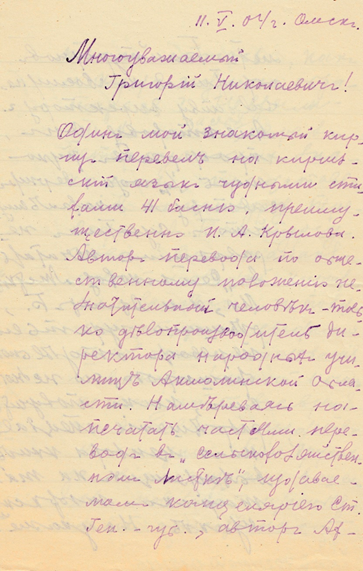 11. V. 04 г. Омскъ.
Многоуважаемый
Григорій Николаевичъ!
Одинъ мой знакомый кир-
гизъ перевелъ на киргиз-
скій языкъ чудными сти-
хами 41 басню, преиму-
щественно И. А. Крылова.
Авторъ перевода по обще-
ственному положенію не-
значительный человѣкъ – толь-
ко дѣлопроизводитель ди-
ректора народныхъ учи-
лищъ Акмолинской обла-
сти. Намѣреваясь на-
печатать частями пере-
водъ въ „сельскохозяйствен-
номъ листкѣ“ издавае-
момъ канцеляріею Ст.
Ген.-губ., авторъ